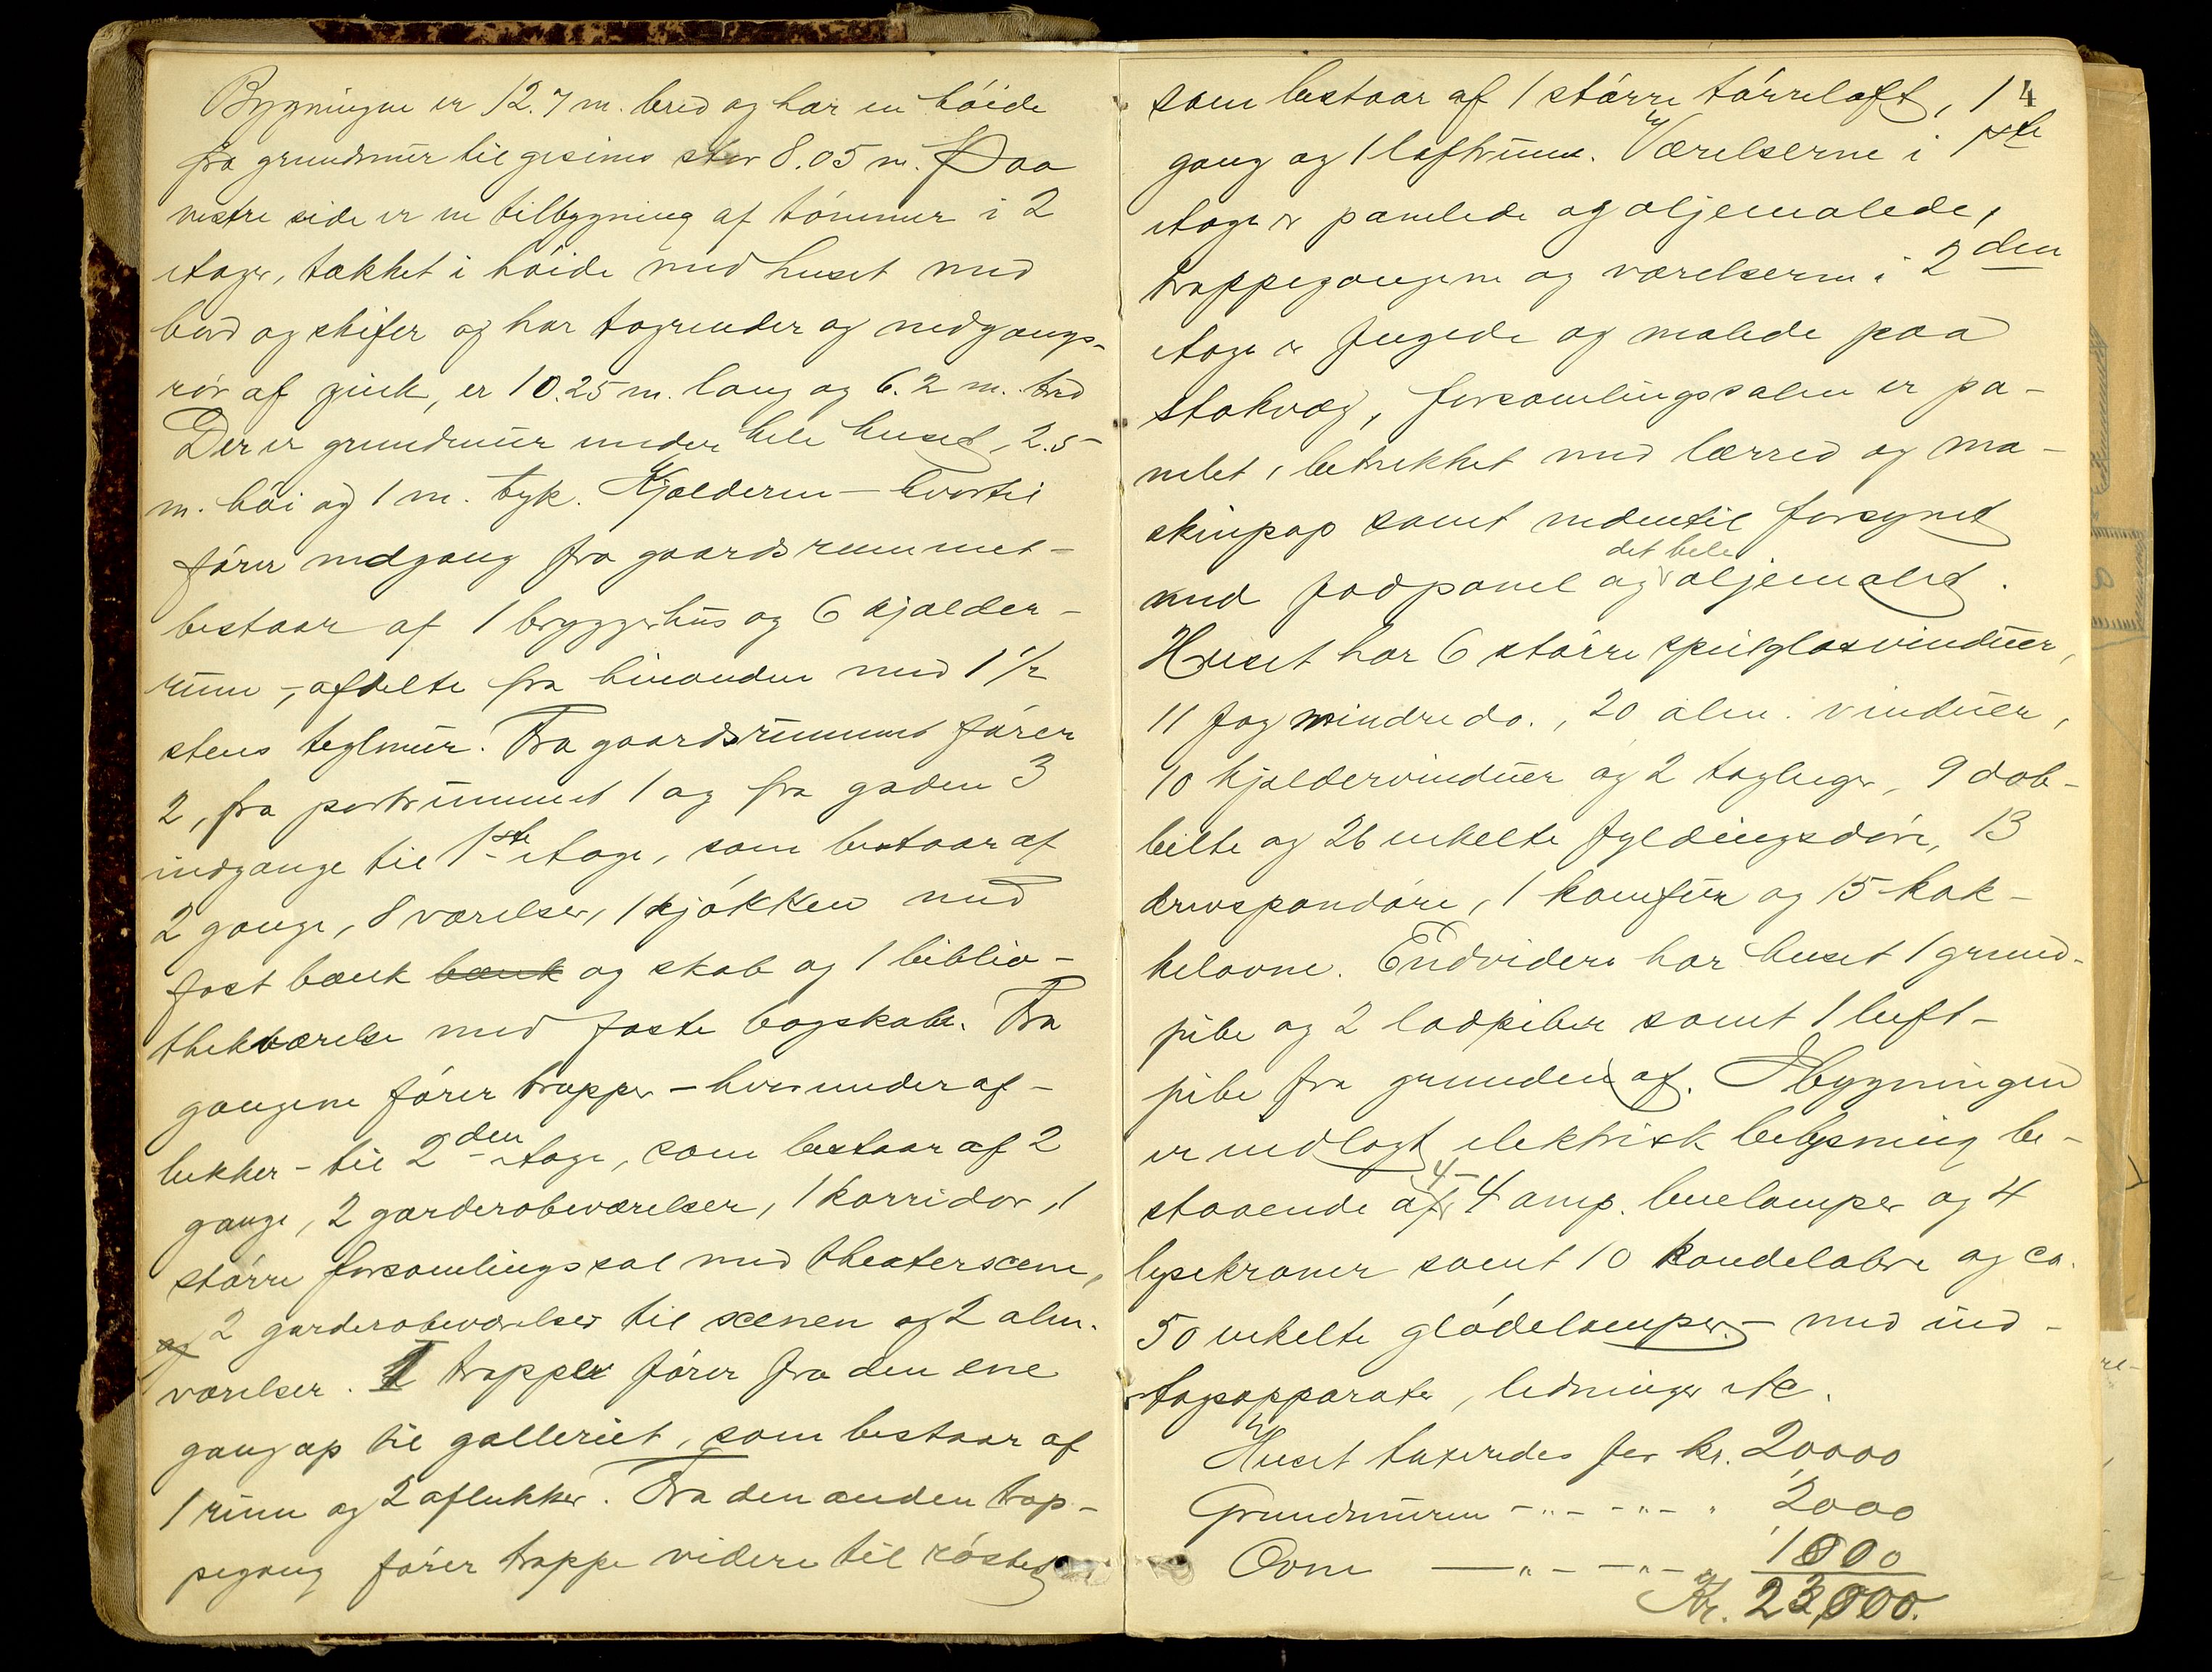 Bygningen er 12.7 m. bred og har en höide
fra grundmur til gesims stor 8.05 m. Paa
vestre side er en tilbygning af tömmer i 2
etager, takket i höide med huset med
bord og skifer og har tagrender og nedgangs-
rör af zink, er 10.25 m. lang og 6.2 m. bred
Der er grundmur under hele huset, 2.5
m. höi og 1 m. tyk. Kjælderen – hvortil
förer nedgang fra gaardsrummet –
bestaar af 1 bryggerhus og 6 kjælder-
rum –, afdelte fra hinanden med 1 1/2
stens teglmur. Fra gaardsrummet förer
2, fra portrummet 1 og fra gaden 3
indgange til 1ste etage, som bestaar af
2 gange, 8 værelser, 1 kjökken med
fast bænk bænk og skab og 1 biblio-
thekværelse med faste bogskabe. Fra
gangene förer trapper – herunder af-
lukker – til 2den etage, som bestaar af 2
gange, 2 garderobeværelser, 1 korridor, 1
större forsamlingssal med theaterscene,
og 2 garderobeværelser til scenen og 2 alm.
værelser. 1 trappe förer fra den ene
gang op til galleriet, som bestaar af
1 rum og 2 aflukker. Fra den anden trap-
pegang förer trappe videre til röstet,
som bestaar af 1 större törreloft, 1 4
gang og 1 loftrum. Værelserne i 1ste
etage er panelede og oljemalede,
trappegangene og værelserne i 2den
etage er fugede og malede paa
stokvæg, forsamlingssalen er pa-
nelet, betrukket med lærred og ma-
skinpap samt nedentil forsynet
med fodpanel og det hele oljemalet.
Huset har 6 större speilglasvinduer,
11 fag mindre do., 20 alm. vinduer,
10 kjældervinduer og 2 tagluger, 9 dob-
belte og 26 enkelte fyldingsdöre, 13
drevspandöre, 1 komfur og 15 kak-
kelovne. Endvidere har huset 1 grund-
pibe og 2 lodpiber samt 1 luft-
pibe fra grunden af. I bygningen
er indlagt elektrisk belysning be-
staaende af 4 – 4 amp. buelamper og 4
lysekroner samt 10 kandelabre og ca.
50 enkelte glödelamper – med ind-
tagsapparater, ledninger etc.
Huset taxeredes for kr. 20000
Grundmuren – „ – – „ – „ 2000
Ovne — „ – – „ – „ 1000
Kr. 23,000.